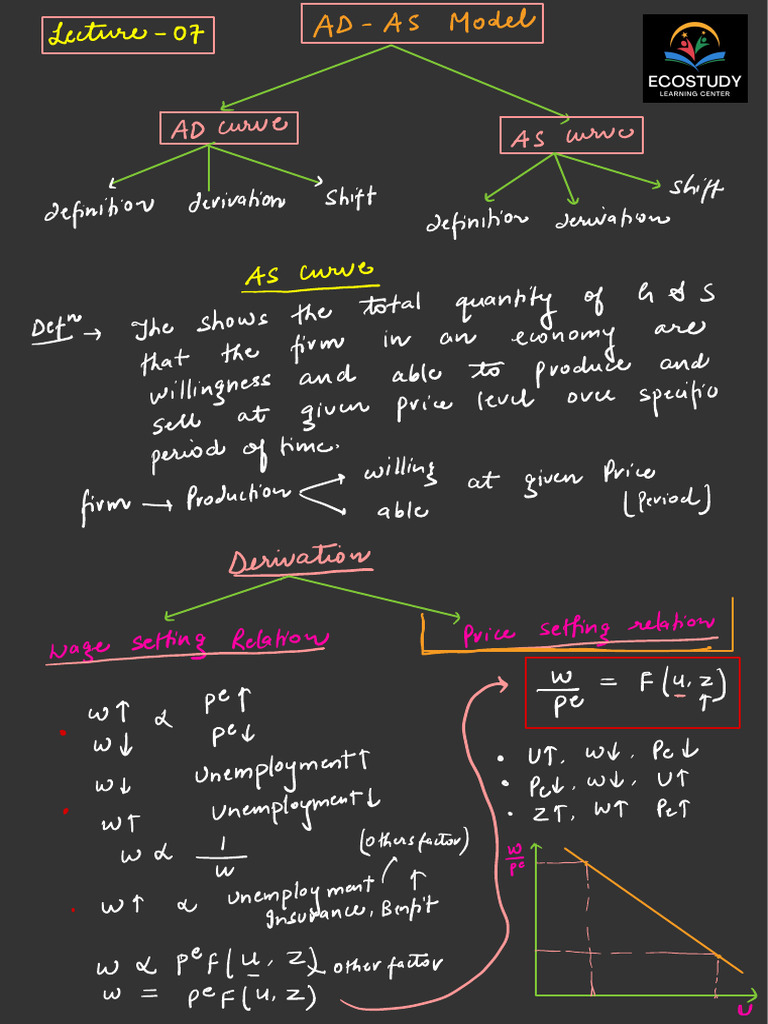 Lecture-07
AD-AS Model
ECOSTUDY
LEARNING CENTER
AD curve
AS curve
definition derivation Shift
definition derivation Shift
AS curve
Defⁿ → The shows the total quantity of G & S
that the firm in an economy are
willingness and able to produce and
sell at given price level over specific
period of time.
firm → Production willing able at given Price (Period)
Derivation
Wage Setting Relation
Price setting relation
w↑ ∝ Pe↑
w↓ Pe↓
w↓ Unemployment↑
w↑ Unemployment↓
w ∝ 1/w
(others factor)
w↑ ∝ Unemployment
Insurance, Benfit
w ∝ PeF(u, z) other factor
w = PeF(u, z)
w/Pe = F(u, z)↑
• U↑, w↓, Pe↓
• Pe↓, w↓, U↑
• Z↑, w↑ Pe↑
w/Pe
U